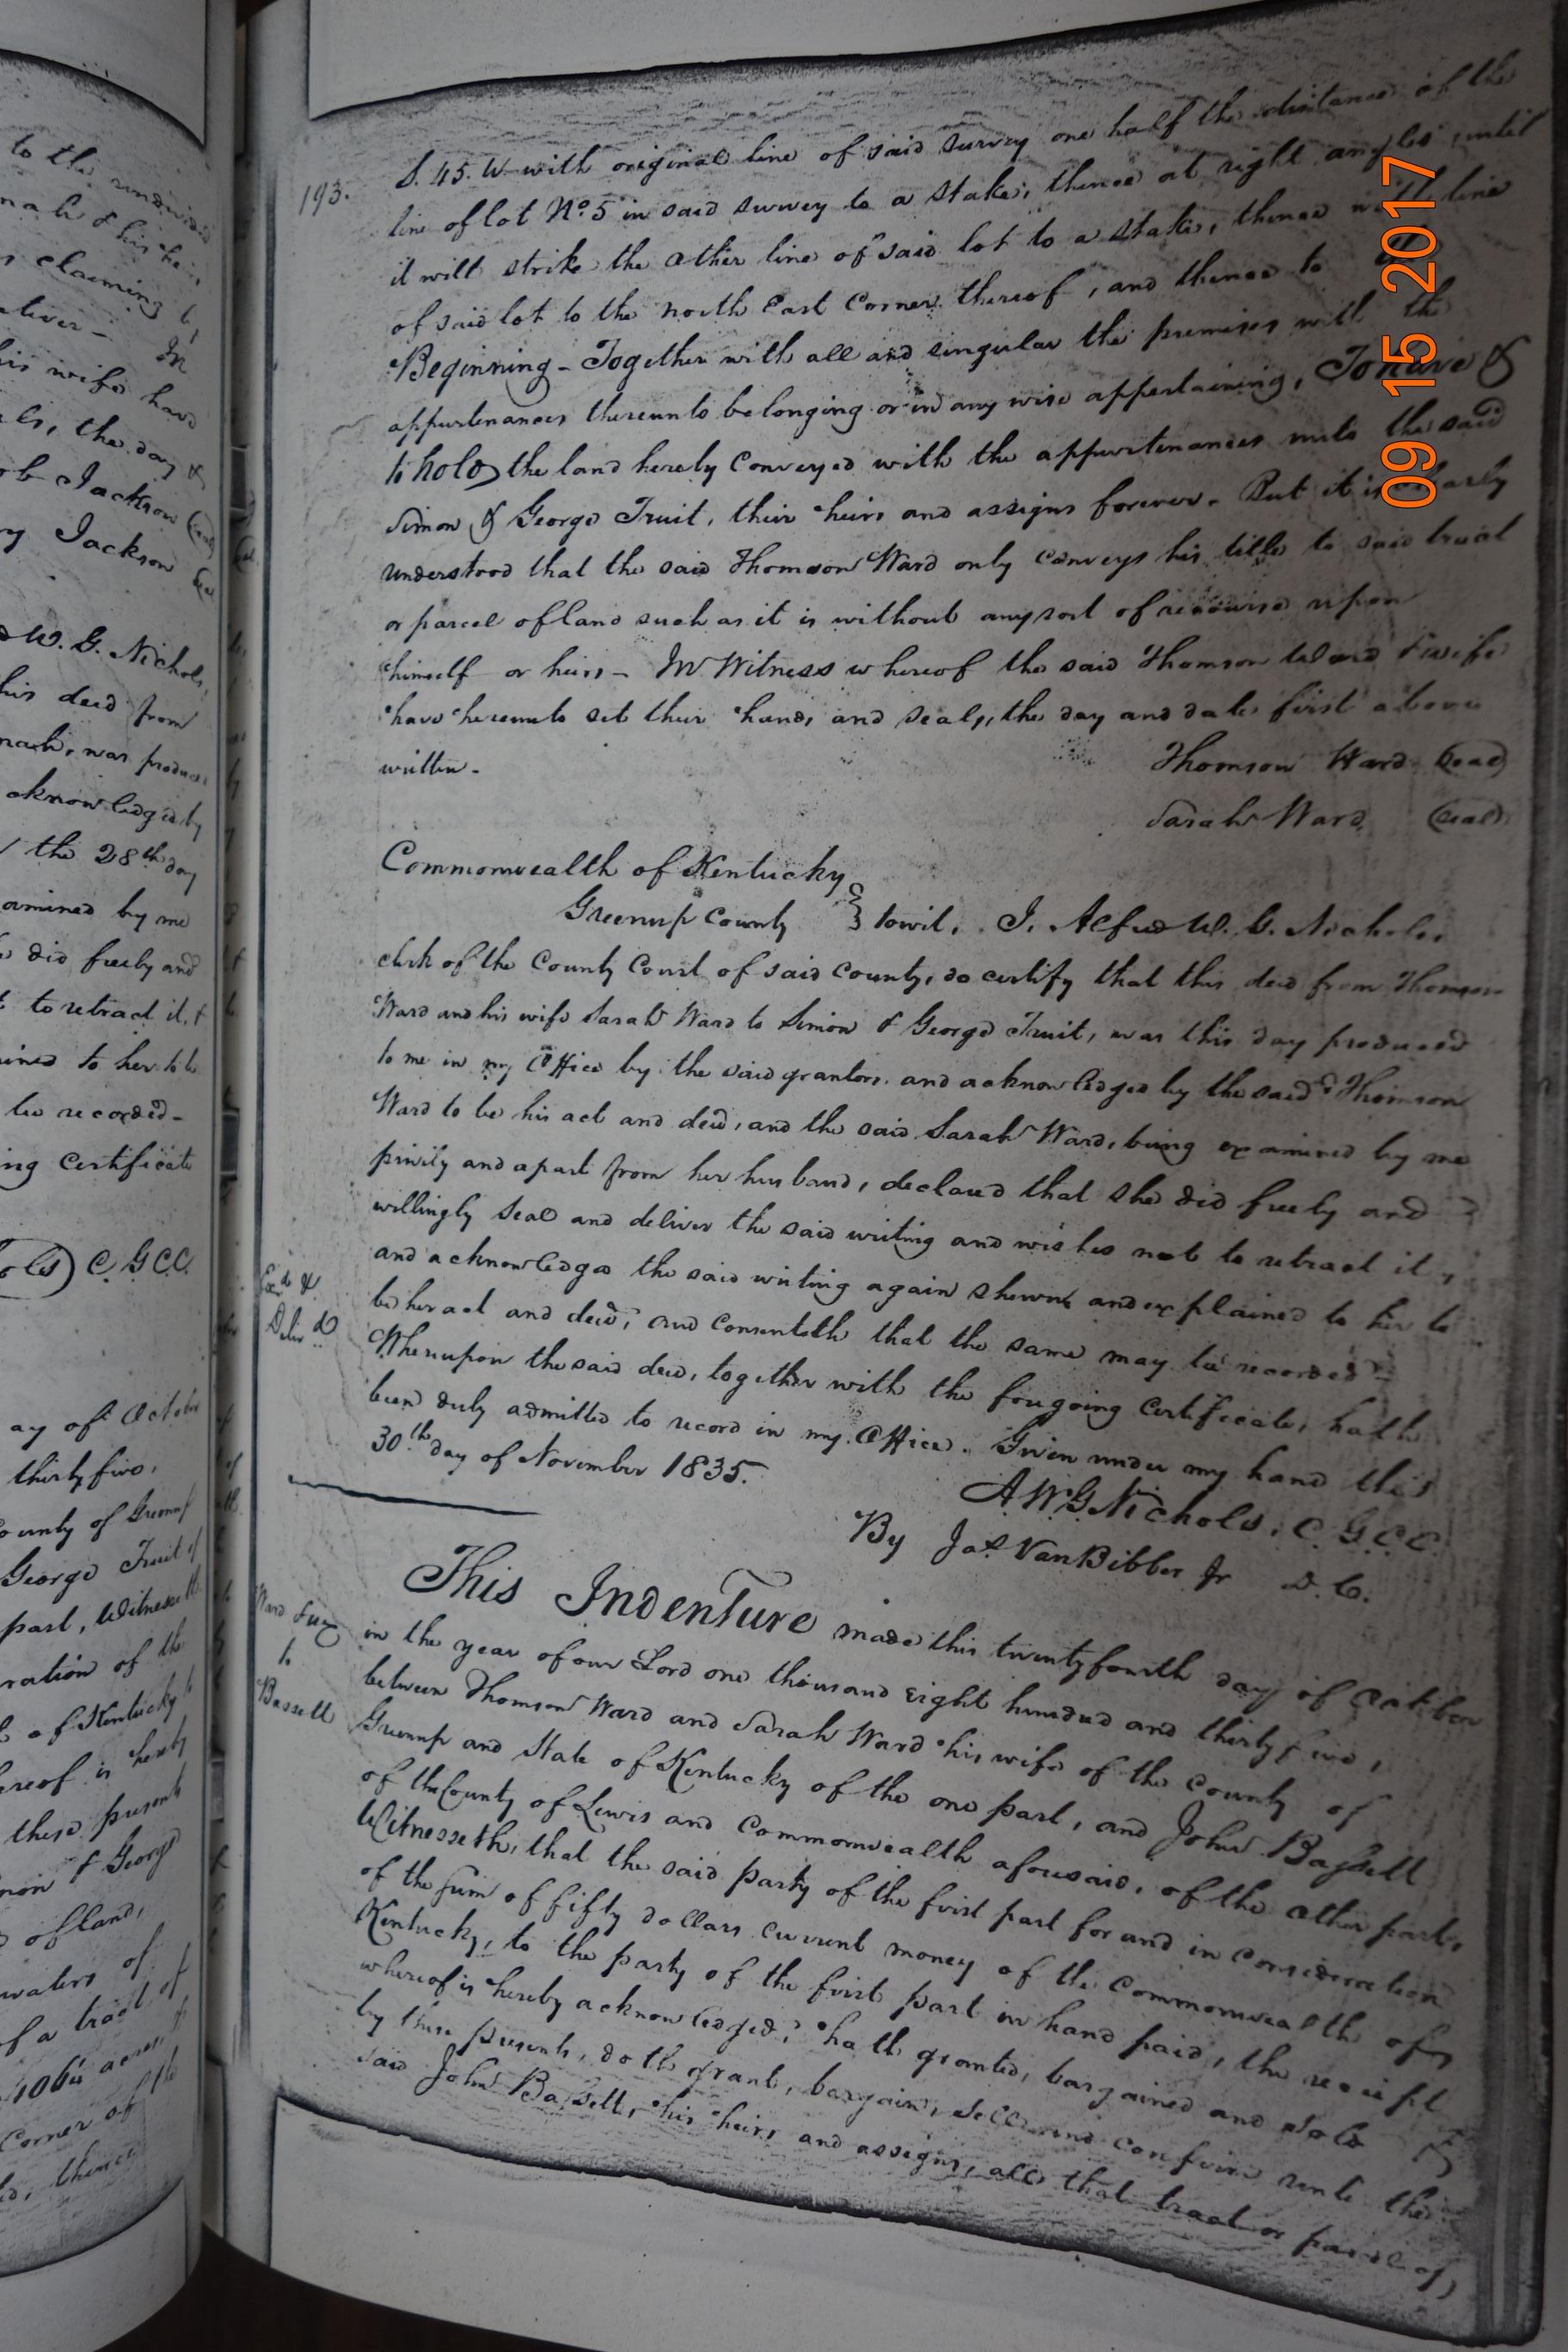 to the undivided
claiming
his wife have
ls, the day &
ob Jackson (seal)
ry Jackson
W. G. Nichols,
his deed from
was produced
acknowledged by
the 28th day
examined by me
did freely and
to retract it, &
ined to her to be
be recorded -
ing Certificate
C. G C C.
ay of October
thirty five,
County of Greenup
George Truit of
part, Witnesseth
ration of the
of Kentucky
ereof is hereby
these presents
& George
of land,
waters of
of a tract of
acres,
Corner of
thence
193.
S. 45. W with original line of said survey one half the distance of the
line of lot No. 5 in said survey to a stake, thence at right angles until
it will strike the other line of said lot to a stake, thence with line
of said lot to the north East Corner thereof, and thence to the
Beginning - Together with all and singular the premises with the
appurtenances thereunto belonging or in any wise appertaining, To have &
to hold the land hereby Conveyed with the appurtenances unto the said
Simon & George Truit, their heirs and assigns forever. But it is clearly
understood that the said Thomson Ward only conveys his title to said tract
or parcel of land such as it is without any sort of recourse upon
himself or heirs - In Witness whereof the said Thomson Ward & wife
have hereunto set their hands and seals, the day and date first above
written -
Thomson Ward (seal)
Sarah Ward (seal)
Commonwealth of Kentucky
Greenup County } towit, I, Alfred W. G. Nichols,
clerk of the County Court of said County, do certify that this deed from Thomson
Ward and his wife Sarah Ward to Simon & George Truit, was this day produced
to me in my Office by the said grantors, and acknowledged by the said Thomson
Ward to be his act and deed, and the said Sarah Ward, being examined by me
privily and apart from her husband, declared that she did freely and
willingly seal and deliver the said writing and wishes not to retract it,
and acknowledges the said writing again shewn and explained to her to
be her act and deed, and consenteth that the same may be recorded
Whereupon the said deed, together with the foregoing Certificate, hath
been duly admitted to record in my Office. Given under my hand this
30th day of November 1835.
Exd. &
Delivd
A W G Nichols, C. G. C. C.
By Jas. VanBibber Jr D. C.
Ward &ux
to
Bassett
This Indenture made this twenty fourth day of October
in the year of our Lord one thousand Eight hundred and thirty five,
between Thomson Ward and Sarah Ward his wife of the County of
Greenup and State of Kentucky of the one part, and John Bassett
of the County of Lewis and Commonwealth aforesaid, of the other part,
Witnesseth, that the said party of the first part for and in Consideration
of the sum of fifty dollars current money of the Commonwealth of
Kentucky, to the party of the first part in hand paid, the receipt
whereof is hereby acknowledged, hath granted, bargained and sold &
by these presents, doth grant, bargain, sell and confirm unto the
said John Bassett, his heirs and assigns, all that tract or parcel of
09 15 2017